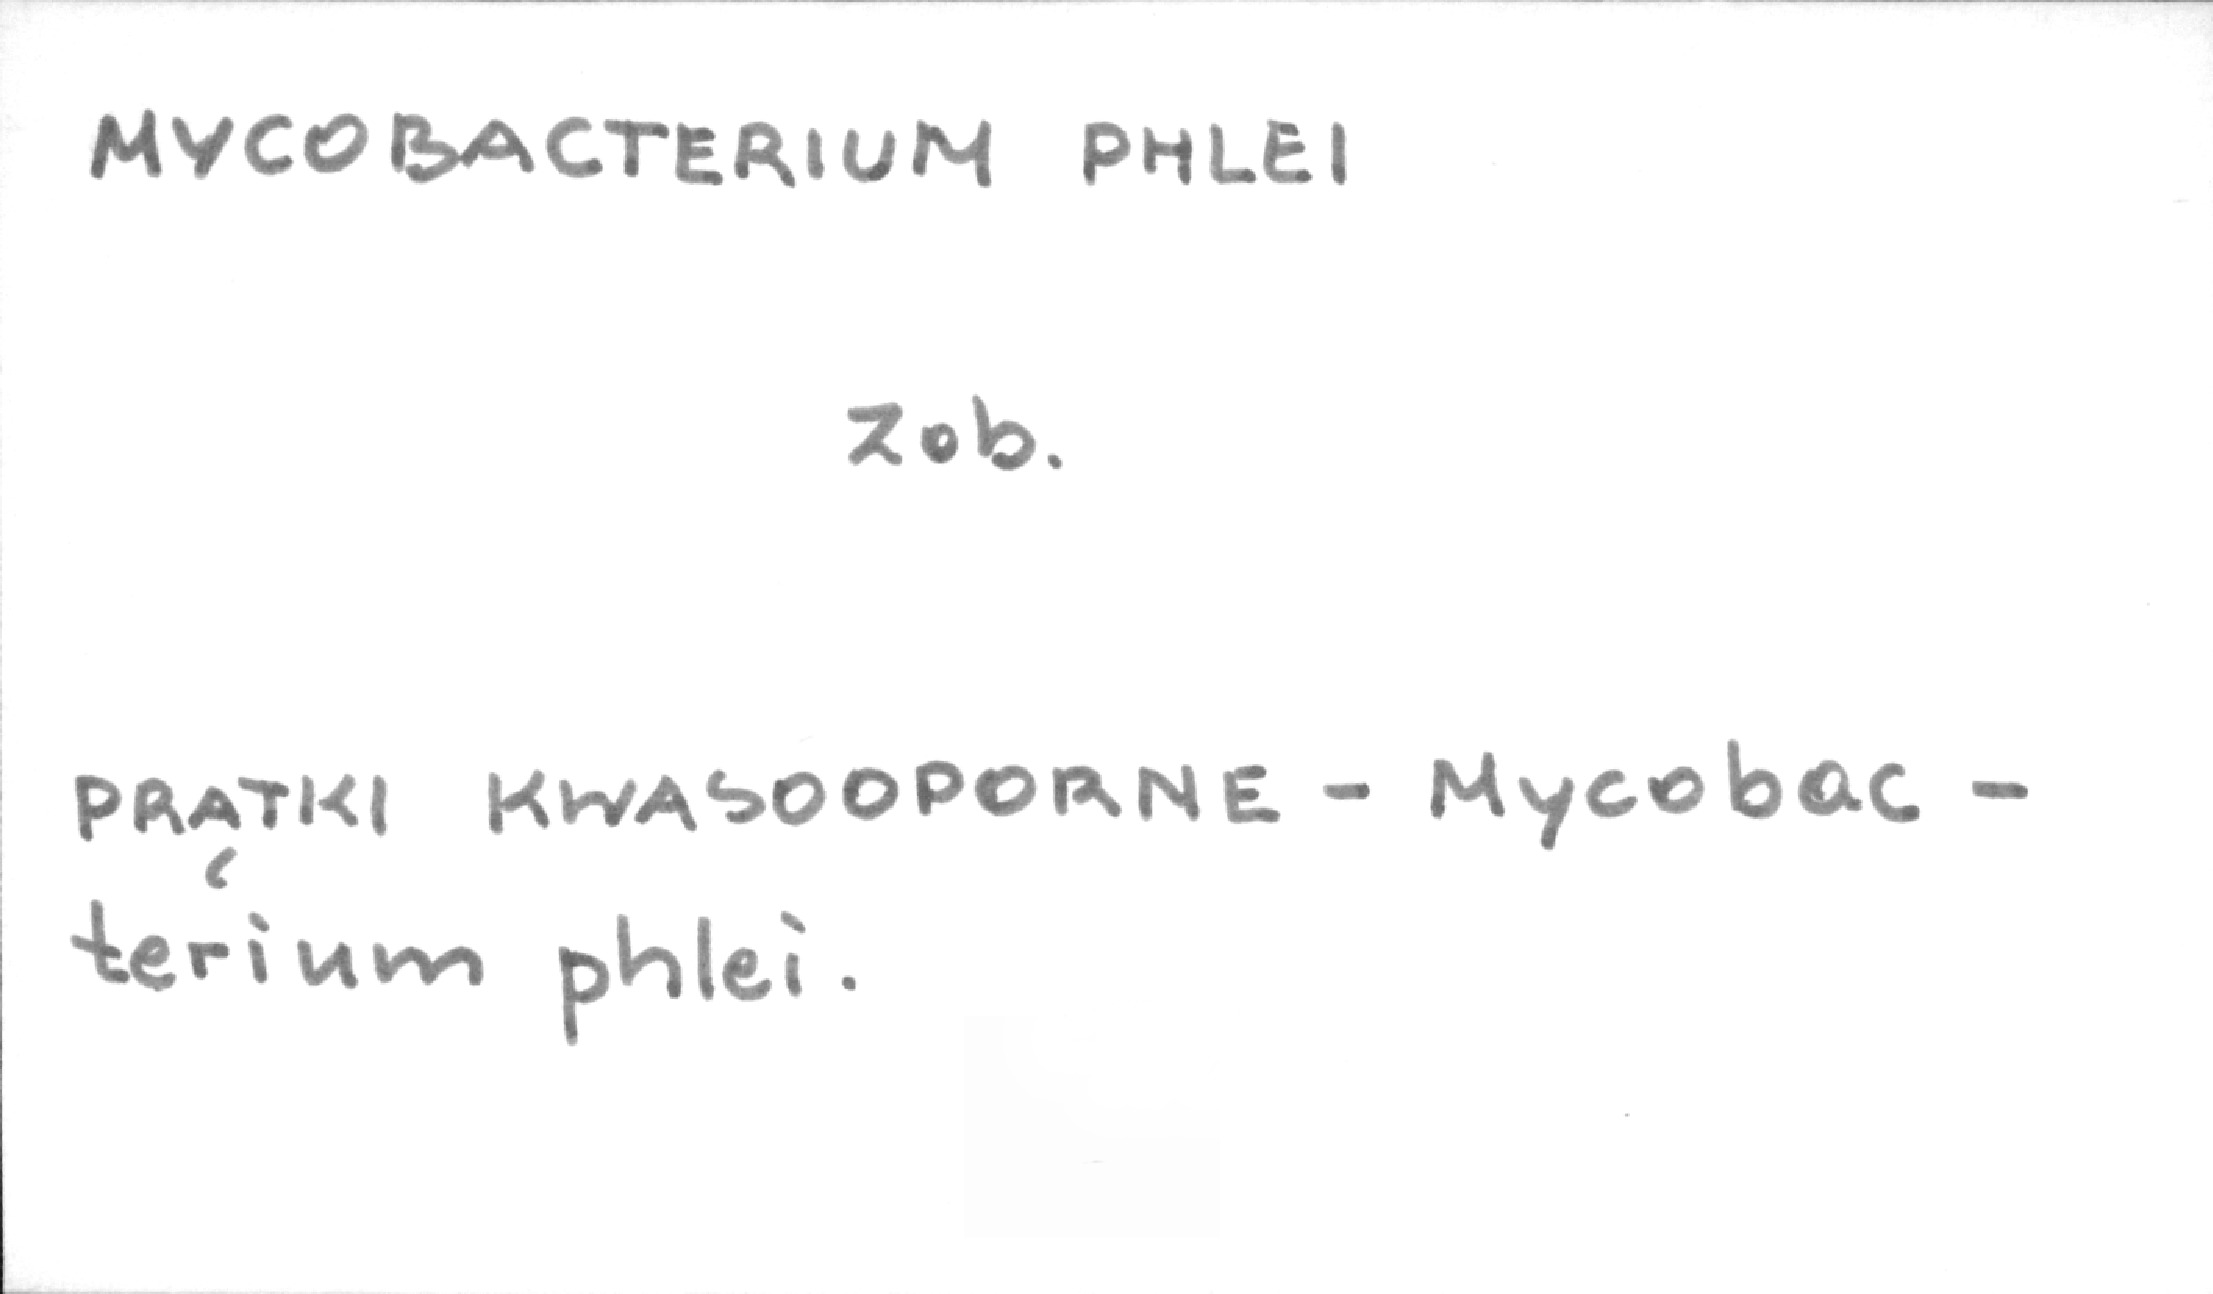 MYCOBACTERIUM PHLEI
Zob.
PRĄTKI KWASOOPORNE - Mycobac-
terium phlei.